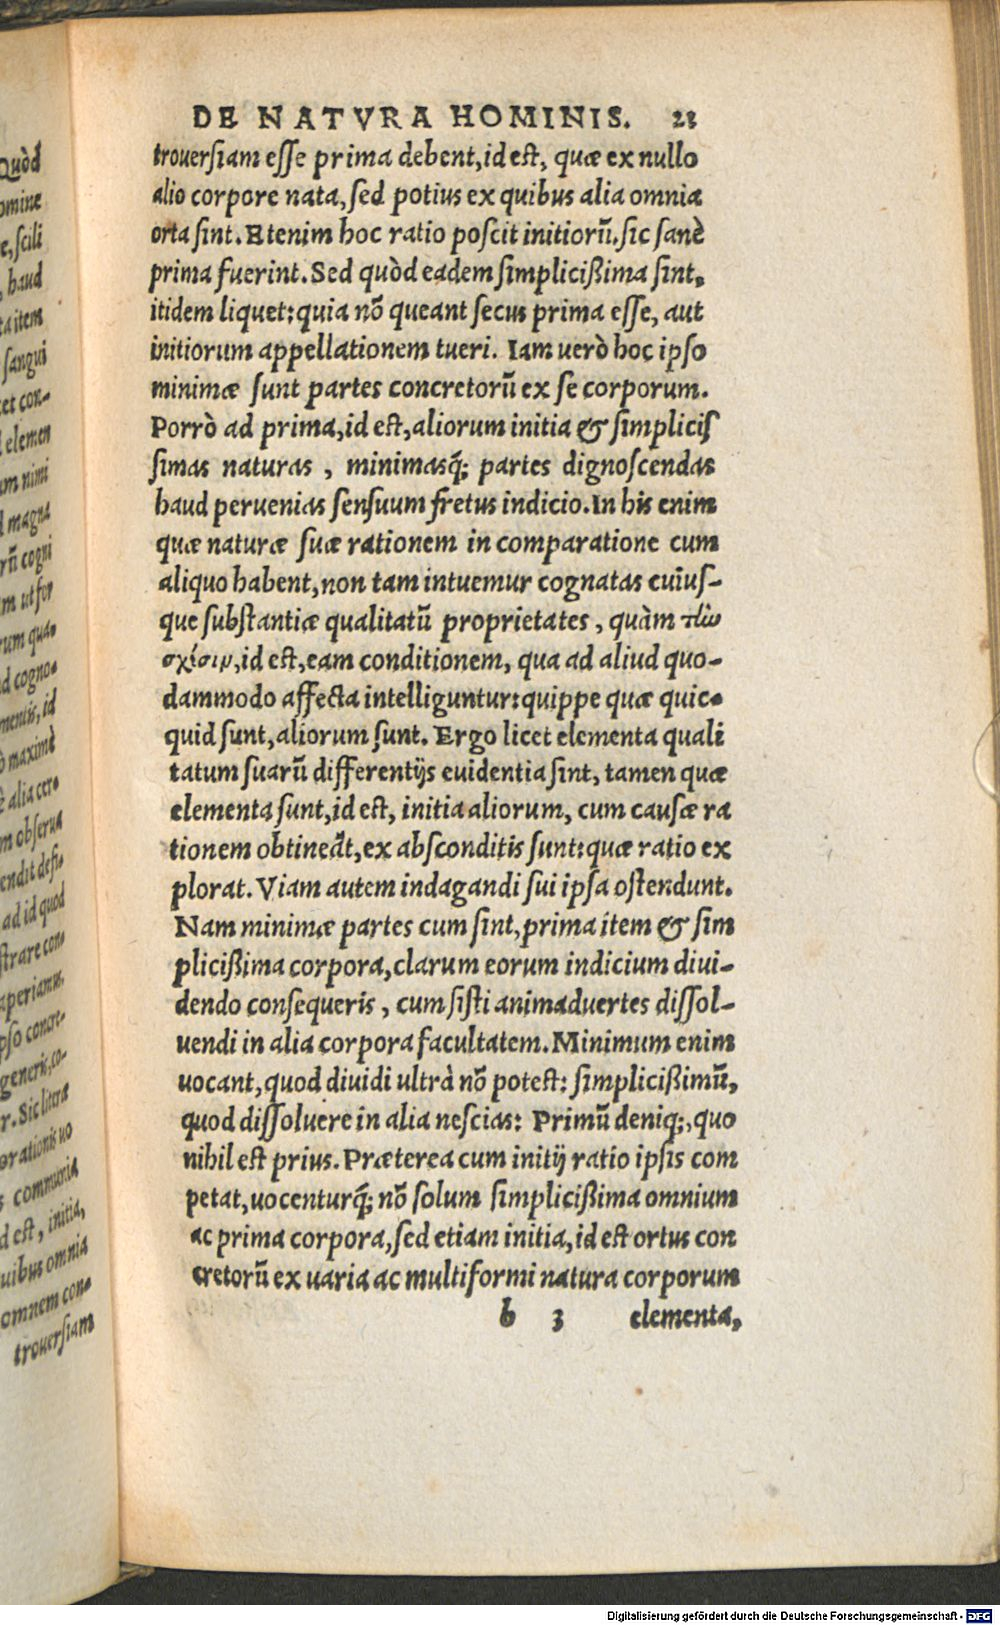 DE NATVRA HOMINIS. 23
trouersiam esse prima debent, id est, quæ ex nullo
alio corpore nata, sed potius ex quibus alia omnia
orta sint. Etenim hoc ratio poscit initiorũ. sic sanè
prima fuerint. Sed quòd eadem simplicißima sint,
itidem liquet: quia nõ queant secus prima esse, aut
initiorum appellationem tueri. Iam uerò hoc ipso
minimæ sunt partes concretorũ ex se corporum.
Porrò ad prima, id est, aliorum initia & simplicis
simas naturas, minimasq́; partes dignoscendas
haud peruenias sensuum fretus indicio. In his enim
quæ naturæ suæ rationem in comparatione cum
aliquo habent, non tam intuemur cognatas cuius-
que substantiæ qualitatũ proprietates, quàm τὼ
σχέσιν, id est, eam conditionem, qua ad aliud quo-
dammodo affecta intelliguntur: quippe quæ quic-
quid sunt, aliorum sunt. Ergo licet elementa quali
tatum suarũ differentijs euidentia sint, tamen quæ
elementa sunt, id est, initia aliorum, cum causæ ra
tionem obtineãt, ex absconditis sunt: quæ ratio ex
plorat. Viam autem indagandi sui ipsa ostendunt.
Nam minimæ partes cum sint, prima item & sim
plicißima corpora, clarum eorum indicium diui-
dendo consequeris, cum sisti animaduertes dissol-
uendi in alia corpora facultatem. Minimum enim
uocant, quod diuidi ultrà nõ potest: simplicißimũ,
quod dissoluere in alia nescias: Primũ deniq;, quo
nihil est prius. Præterea cum initij ratio ipsis com
petat, uocenturq́; nõ solum simplicißima omnium
ac prima corpora, sed etiam initia, id est ortus con
cretorũ ex uaria ac multiformi natura corporum
b 3 elementa,
Quòd
omine
e, scili
, haud
ta item
sangui
et con-
elemen
um nimi
magna
rũ cogni
m ut for
rum qua-
d cogno-
mentis, id
ò maximè
alia cer-
m obserua
endit defi-
ad id quod
strare con-
aperiamus,
pso concre-
generis, co-
r. Sic litræ
orationis uo
s communia
d est, initia,
uibus omnia
omnem con-
trouersiam
Digitalisierung gefördert durch die Deutsche Forschungsgemeinschaft - DFG